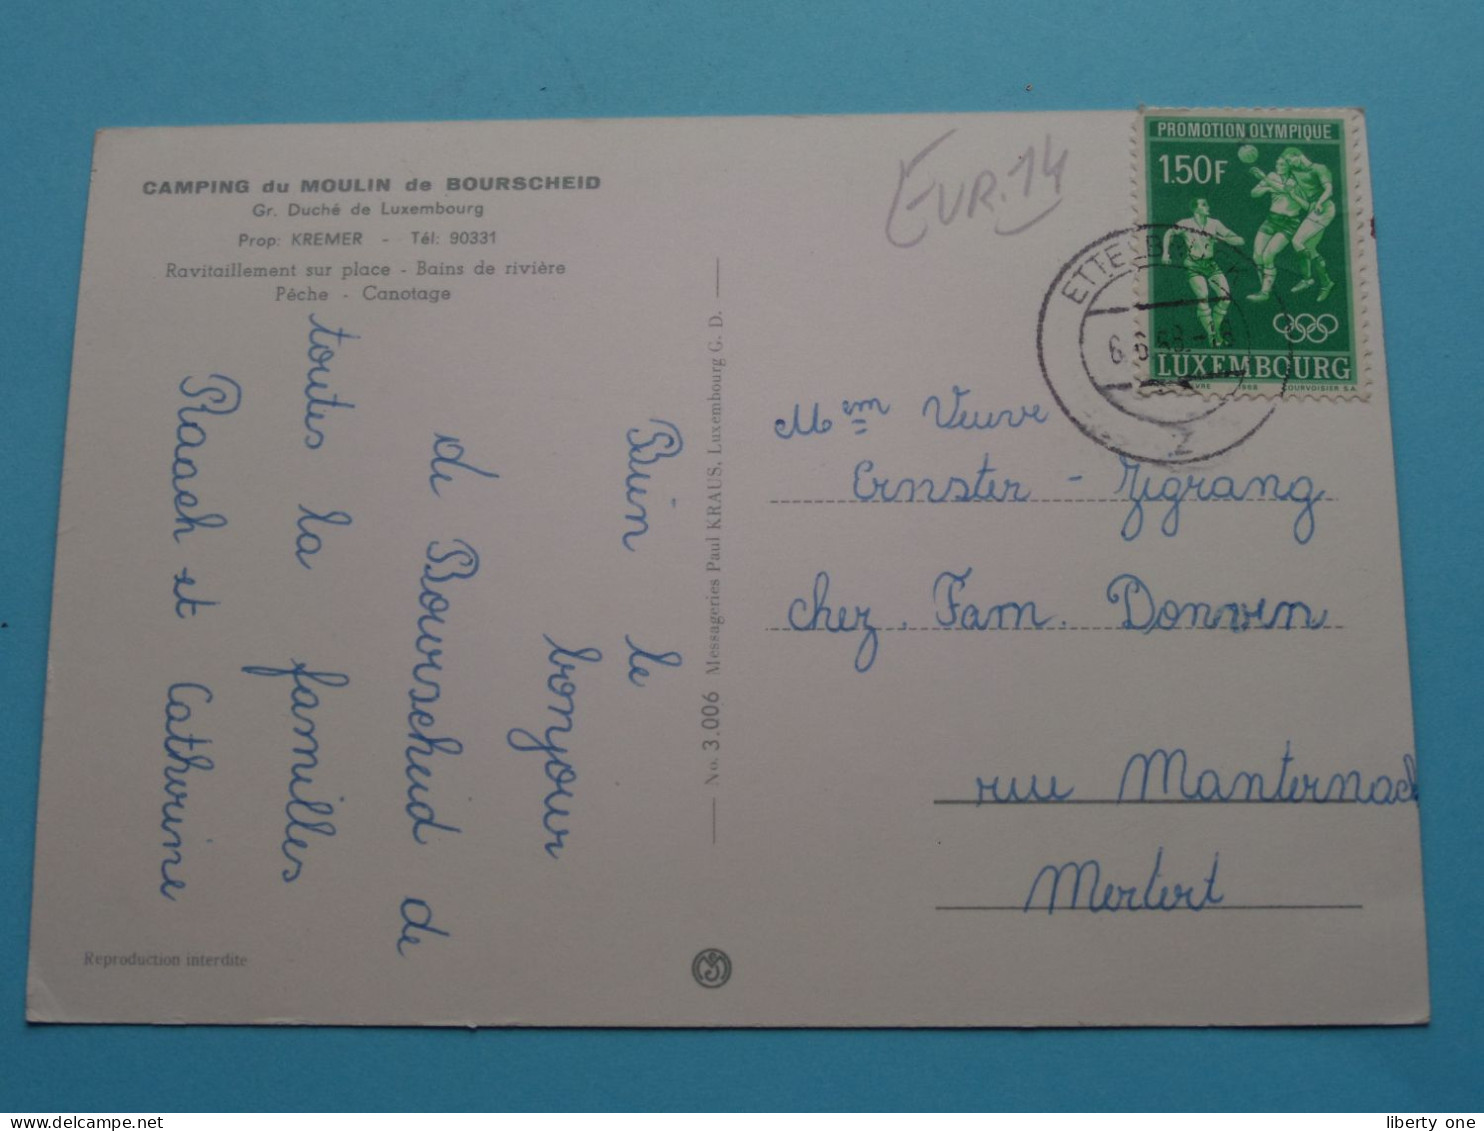 CAMPING du MOULIN de BOURSCHEID
Gr. Duché de Luxembourg
Prop: KREMER - Tél: 90331
Ravitaillement sur place - Bains de rivière
Pêche - Canotage
Buin le
bonjour
de Bourscheid de
toutes la familles
Raach et Catherine
Reproduction interdite
No. 3.006 Messageries Paul KRAUS, Luxembourg G. D.
EUR. 14
PROMOTION OLYMPIQUE
1.50F
LUXEMBOURG
1968 COURVOISIER S.A.
ETTELBRUCK
6.6.68.-18
2
Mem Veuve
Ernster - Zigrang
chez. Fam. Donven
rue Manternach
Mertert
delcampe.net
liberty one